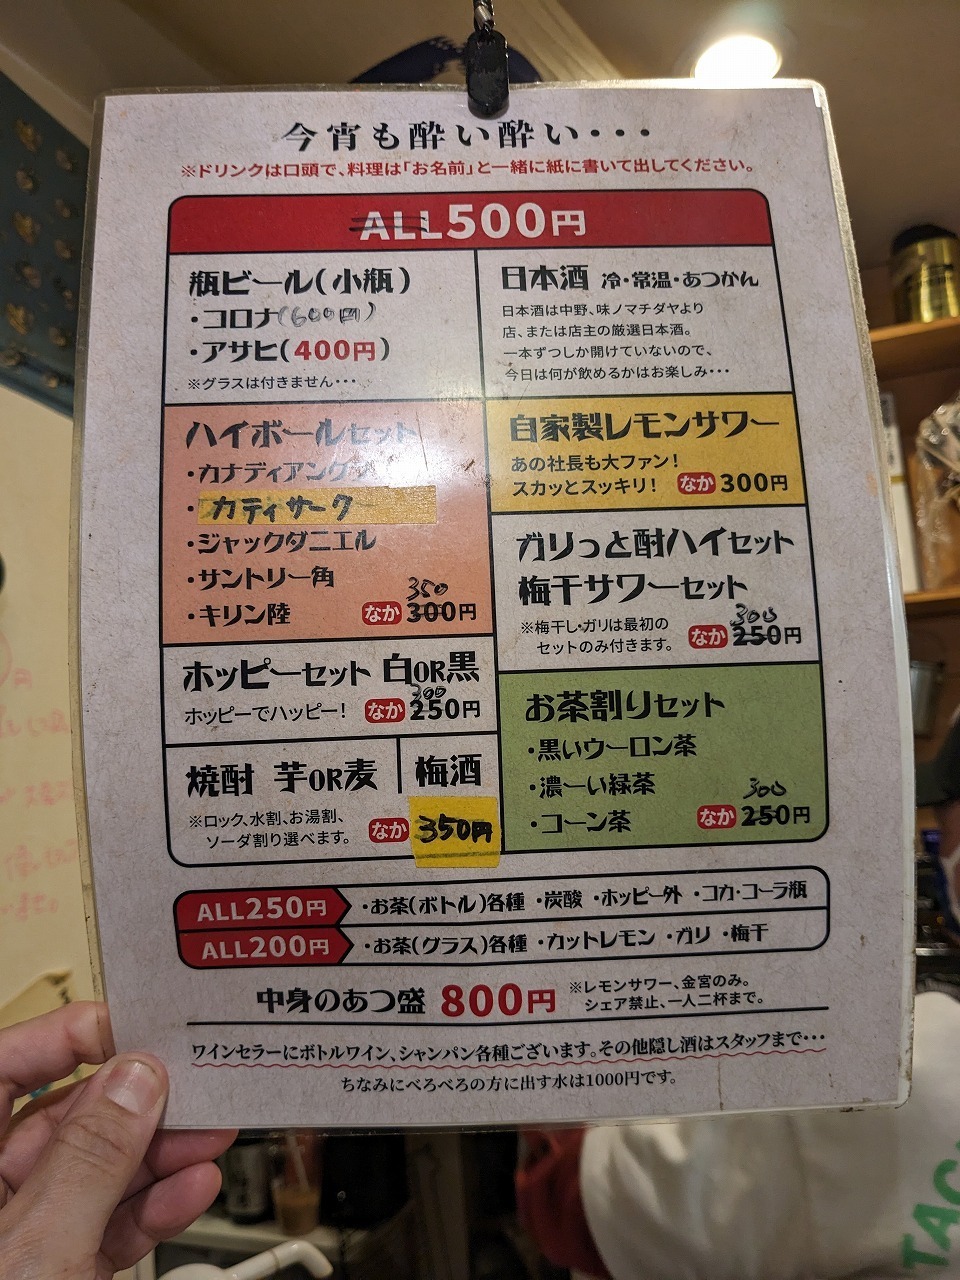 今宵も酔い酔い・・・
※ドリンクは口頭で、料理は「お名前」と一緒に紙に書いて出してください。
ALL500円
瓶ビール(小瓶)
・コロナ(600円)
・アサヒ(400円)
※グラスは付きません・・・
日本酒 冷・常温・あつかん
日本酒は中野、味ノマチダヤより
店、または店主の厳選日本酒。
一本ずつしか開けていないので、
今日は何が飲めるかはお楽しみ・・・
ハイボールセット
・カナディアンクラブ
・カティサーク
・ジャックダニエル
・サントリー角
350
・キリン陸 なか 300円
自家製レモンサワー
あの社長も大ファン!
スカッとスッキリ! なか 300円
ガリっと酎ハイセット
梅干サワーセット
300
※梅干し・ガリは最初の
セットのみ付きます。 なか 250円
ホッピーセット 白OR黒
300
ホッピーでハッピー! なか 250円
焼酎 芋OR麦 梅酒
※ロック、水割、お湯割、
ソーダ割り選べます。 なか 350円
お茶割りセット
・黒いウーロン茶
・濃ーい緑茶
300
・コーン茶 なか 250円
ALL250円 ・お茶(ボトル)各種 ・炭酸 ・ホッピー外 ・コカ・コーラ瓶
ALL200円 ・お茶(グラス)各種 ・カットレモン ・ガリ ・梅干
中身のあつ盛 800円 ※レモンサワー、金宮のみ。
シェア禁止、一人二杯まで。
ワインセラーにボトルワイン、シャンパン各種ございます。その他隠し酒はスタッフまで・・・
ちなみにべろべろの方に出す水は1000円です。